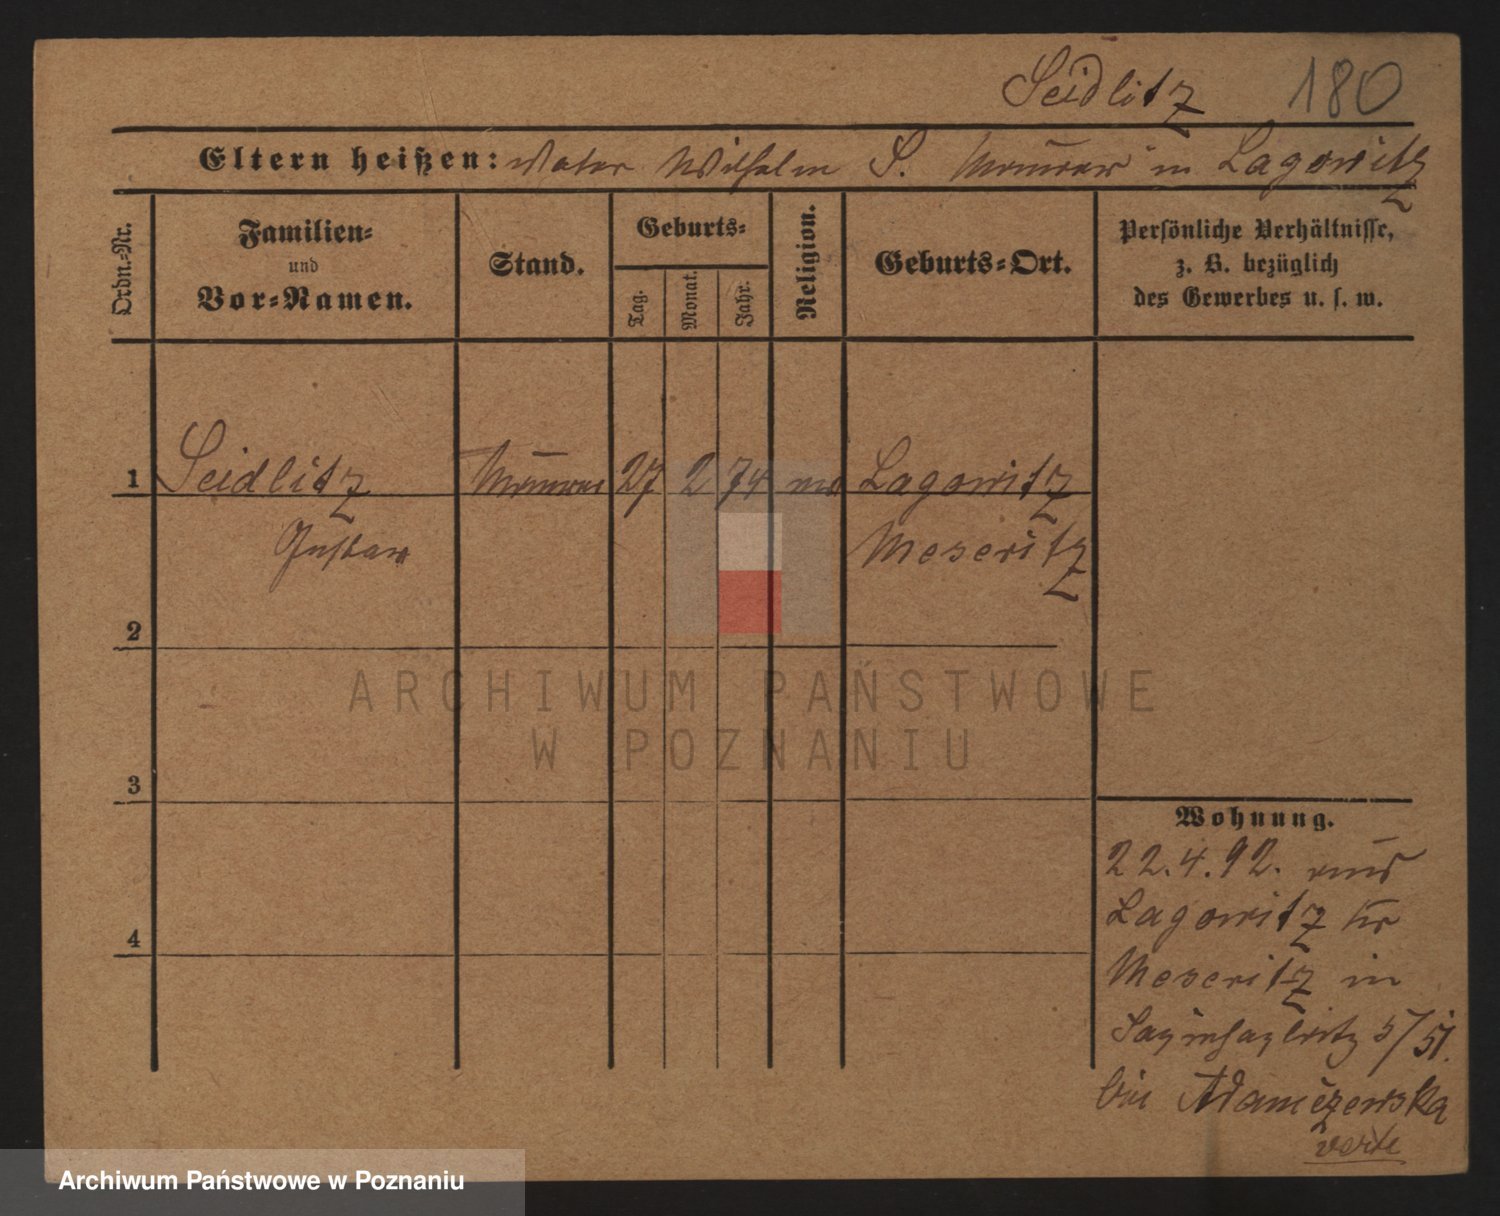 Seidlitz 180
Eltern heißen: Vater Wilhelm S. Maurer in Lagowitz
Ordn.-Nr.
Familien-
und
Vor-Namen.
Stand.
Geburts-
Tag.
Monat.
Jahr.
Religion.
Geburts-Ort.
Persönliche Verhältnisse,
z. B. bezüglich
des Gewerbes u. s. w.
1 Seidlitz Maurer 27 2 74 Lagowitz
Gustav Meseritz
2
3
4
Wohnung.
22.4.92. aus
Lagowitz Kr
Meseritz in
5/51.
bei Adamczewska
verte
ARCHIWUM PAŃSTWOWE
W POZNANIU
Archiwum Państwowe w Poznaniu